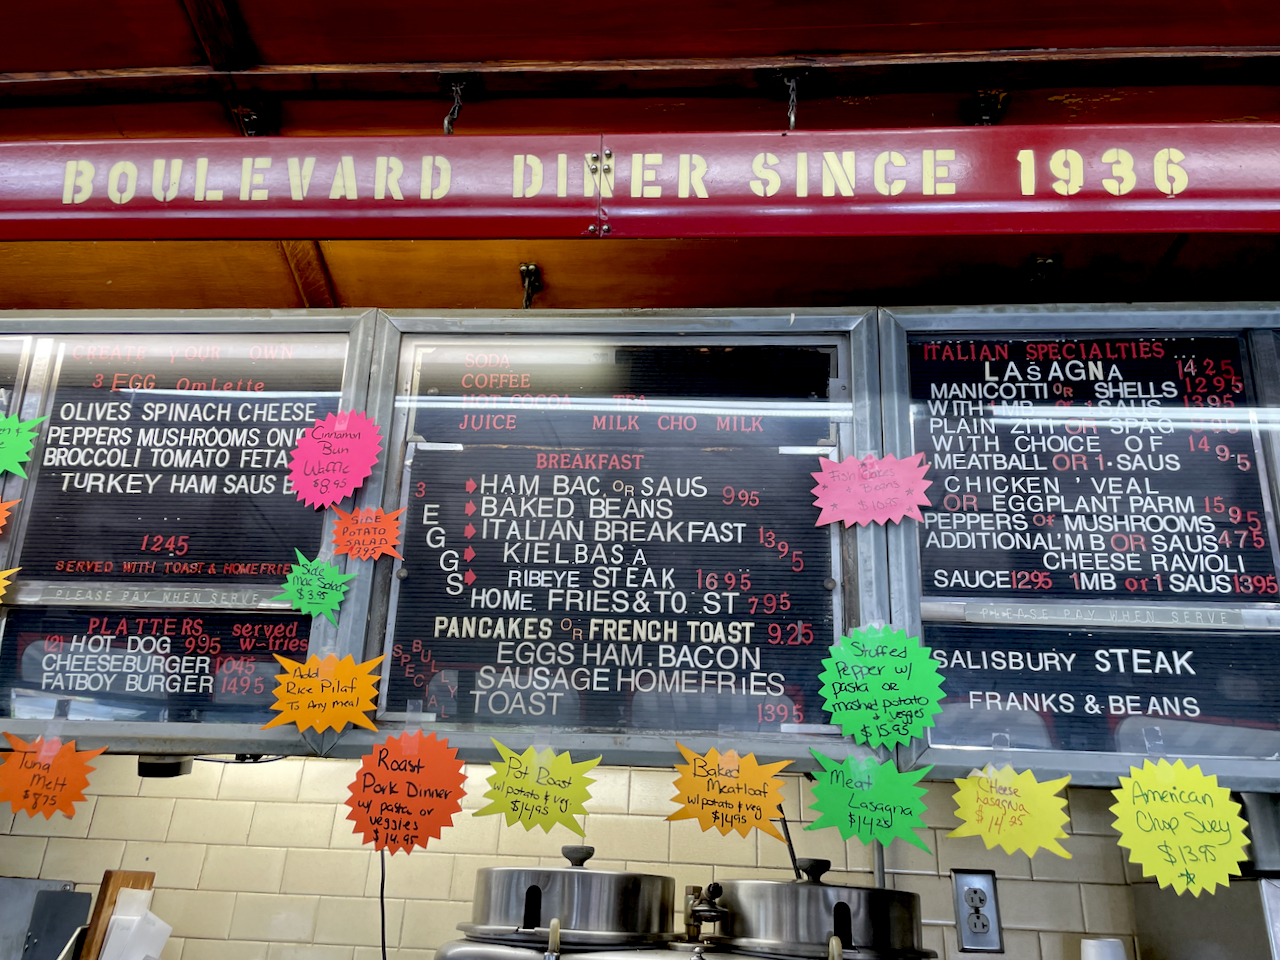 BOULEVARD DINER SINCE 1936
CREATE YOUR OWN
3 EGG OmLette
OLIVES SPINACH CHEESE
PEPPERS MUSHROOMS
BROCCOLI TOMATO FETA
TURKEY HAM SAUS
1245
SERVED WITH TOAST & HOMEFRIE
PLEASE PAY WHEN SERVE
PLATTERS served
(2) HOT DOG 995 w-fries
CHEESEBURGER 1045
FATBOY BURGER 1495
Cinnamon
Bun
Waffle
$8.95
SIDE
POTATO
SALAD
3.95
Side
Mac Salad
$3.95
Add
Rice Pilaf
To Any meal
SODA
COFFEE
HOT COCOA TEA
JUICE MILK CHO MILK
BREAKFAST
3 EGGS
HAM BAC OR SAUS 995
BAKED BEANS
ITALIAN BREAKFAST 1395
KIELBASA
RIBEYE STEAK 1695
HOME FRIES & TO ST 795
PANCAKES OR FRENCH TOAST 9.25
SPECIAL BULLY
EGGS HAM. BACON
SAUSAGE HOMEFRIES
TOAST 1395
Fish Cakes
& Beans
$10.95
Stuffed
Pepper w/
pasta or
mashed potato
+ veggies
$15.95
ITALIAN SPECIALTIES
LASAGNA 1425
MANICOTTI OR SHELLS 1295
WITH 1MB or 1 SAUS 1395
PLAIN ZITI OR SPAG
WITH CHOICE OF 1495
MEATBALL OR 1 SAUS
CHICKEN ' VEAL
OR EGGPLANT PARM 1595
PEPPERS or MUSHROOMS
ADDITIONAL MB OR SAUS 475
CHEESE RAVIOLI
SAUCE 1295 1MB or 1 SAUS 1395
PLEASE PAY WHEN SERVE
SALISBURY STEAK
FRANKS & BEANS
Tuna
Melt
$8.75
Roast
Pork Dinner
w/ pasta or
veggies
$14.95
Pot Roast
w/ potato & veg.
$14.95
Baked
Meatloaf
w/ potato & veg
$14.95
Meat
Lasagna
$14.25
Cheese
Lasagna
$14.25
American
Chop Suey
$13.95